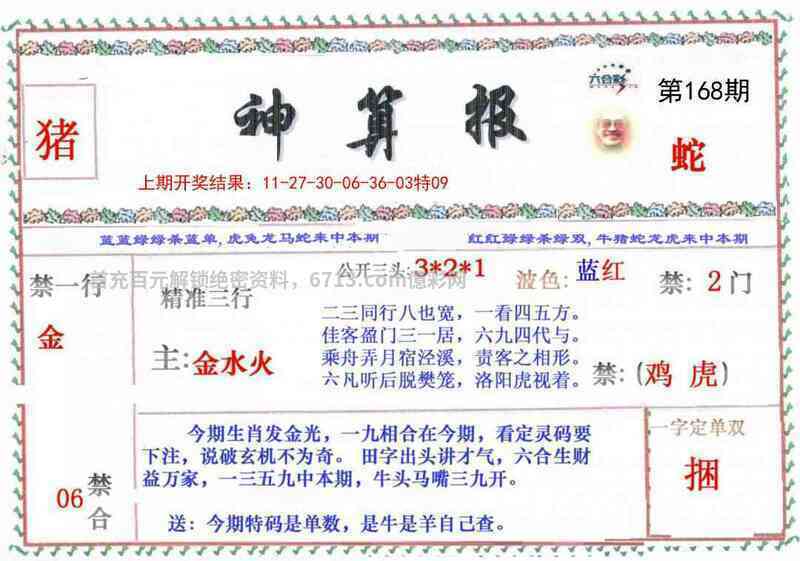 六合彩
第168期
猪
神算报
蛇
上期开奖结果：11-27-30-06-36-03特09
蓝蓝绿绿杀蓝单,虎兔龙马蛇来中本期
红红绿绿杀绿双,牛猪蛇龙虎来中本期
首充百元解锁绝密资料，6713.com億彩网
公开三头:3*2*1
波色：蓝红
禁：2门
禁一行
金
精准三行
主:金水火
二三同行八也宽，一看四五方。
佳客盈门三一居，六九四代与。
乘舟弄月宿泾溪，贵客之相形。
六凡听后脱樊笼，洛阳虎视着。
禁：(鸡 虎)
今期生肖发金光，一九相合在今期，看定灵码要
下注，说破玄机不为奇。 田字出头讲才气，六合生财
益万家，一三五九中本期，牛头马嘴三九开。
送：今期特码是单数，是牛是羊自己查。
06
禁合
一字定单双
捆